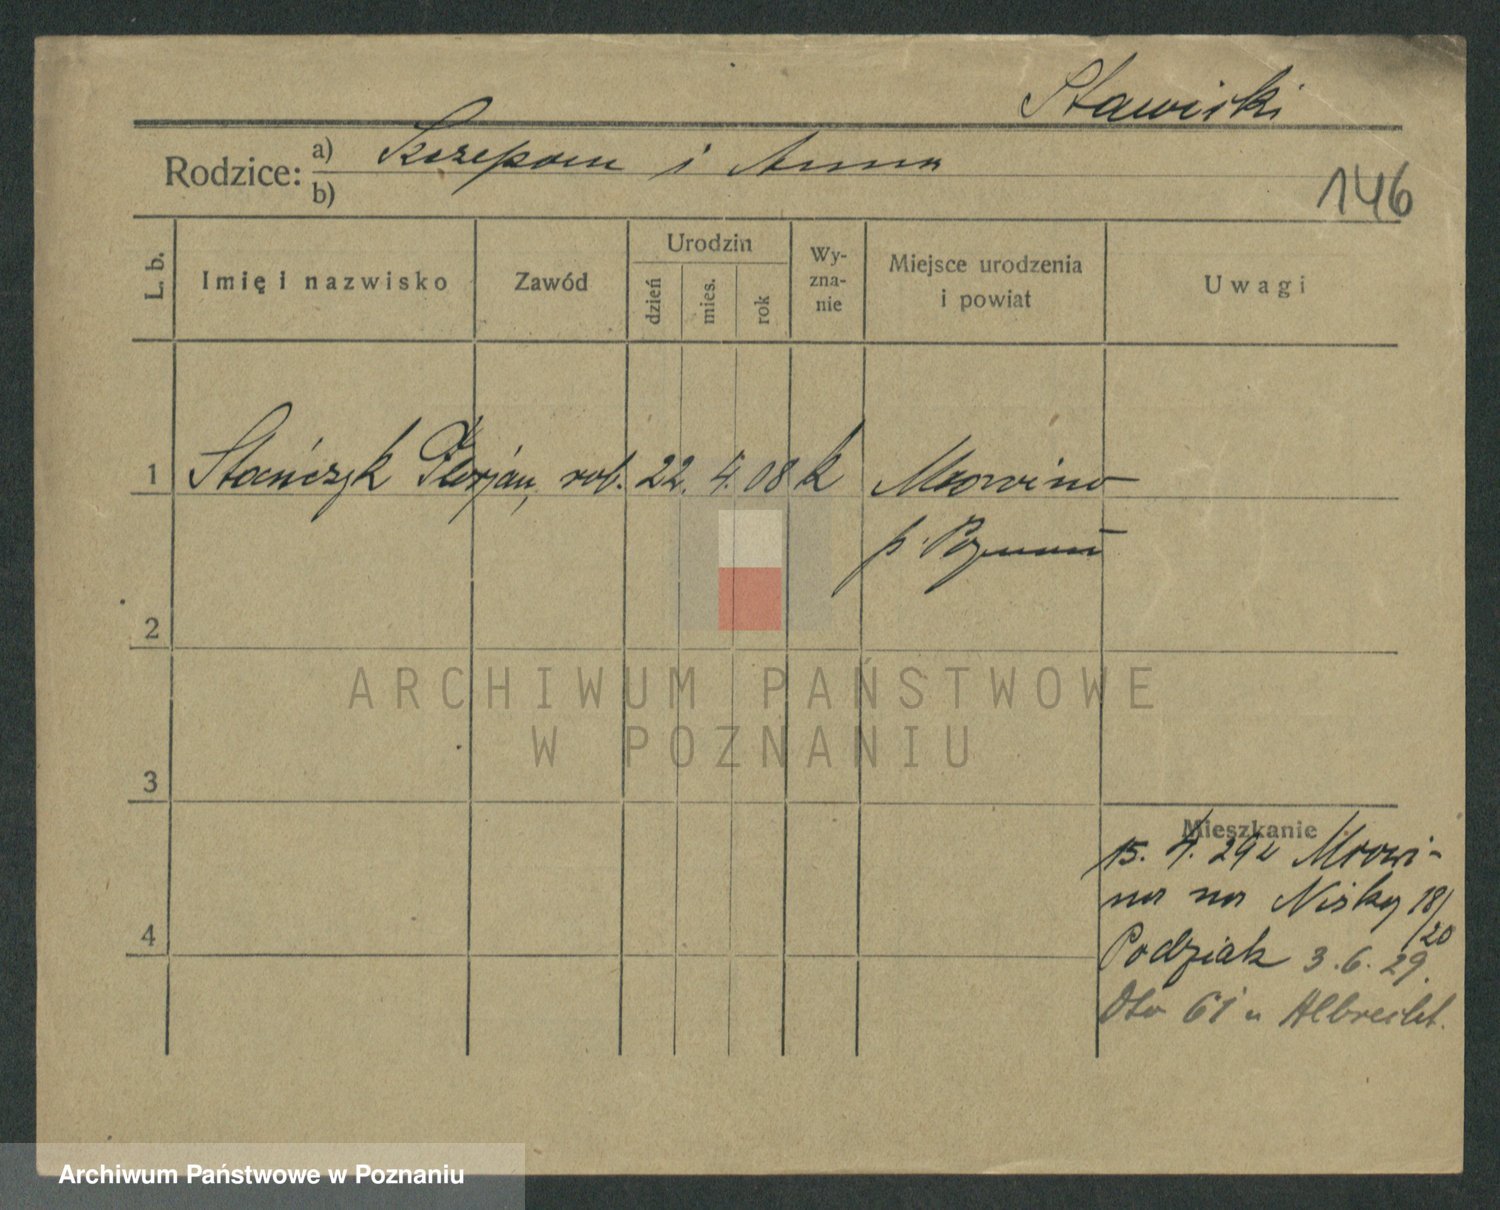 Stawiski
Rodzice: a) Szczepan i Anna
b)
146
L. b.
Imię i nazwisko
Zawód
Urodzin
dzień
mies.
rok
Wy-
zna-
nie
Miejsce urodzenia
i powiat
Uwagi
1 Stańczyk Florjan, rob. 22. 4. 08 k Mrowino
p. Poznań
2
ARCHIWUM PAŃSTWOWE
W POZNANIU
3
4
Mieszkanie
15. 4. 29 z Mrowi-
na na Niską 18/20
Podziak 3.6.29.
61 u Albrecht.
Archiwum Państwowe w Poznaniu